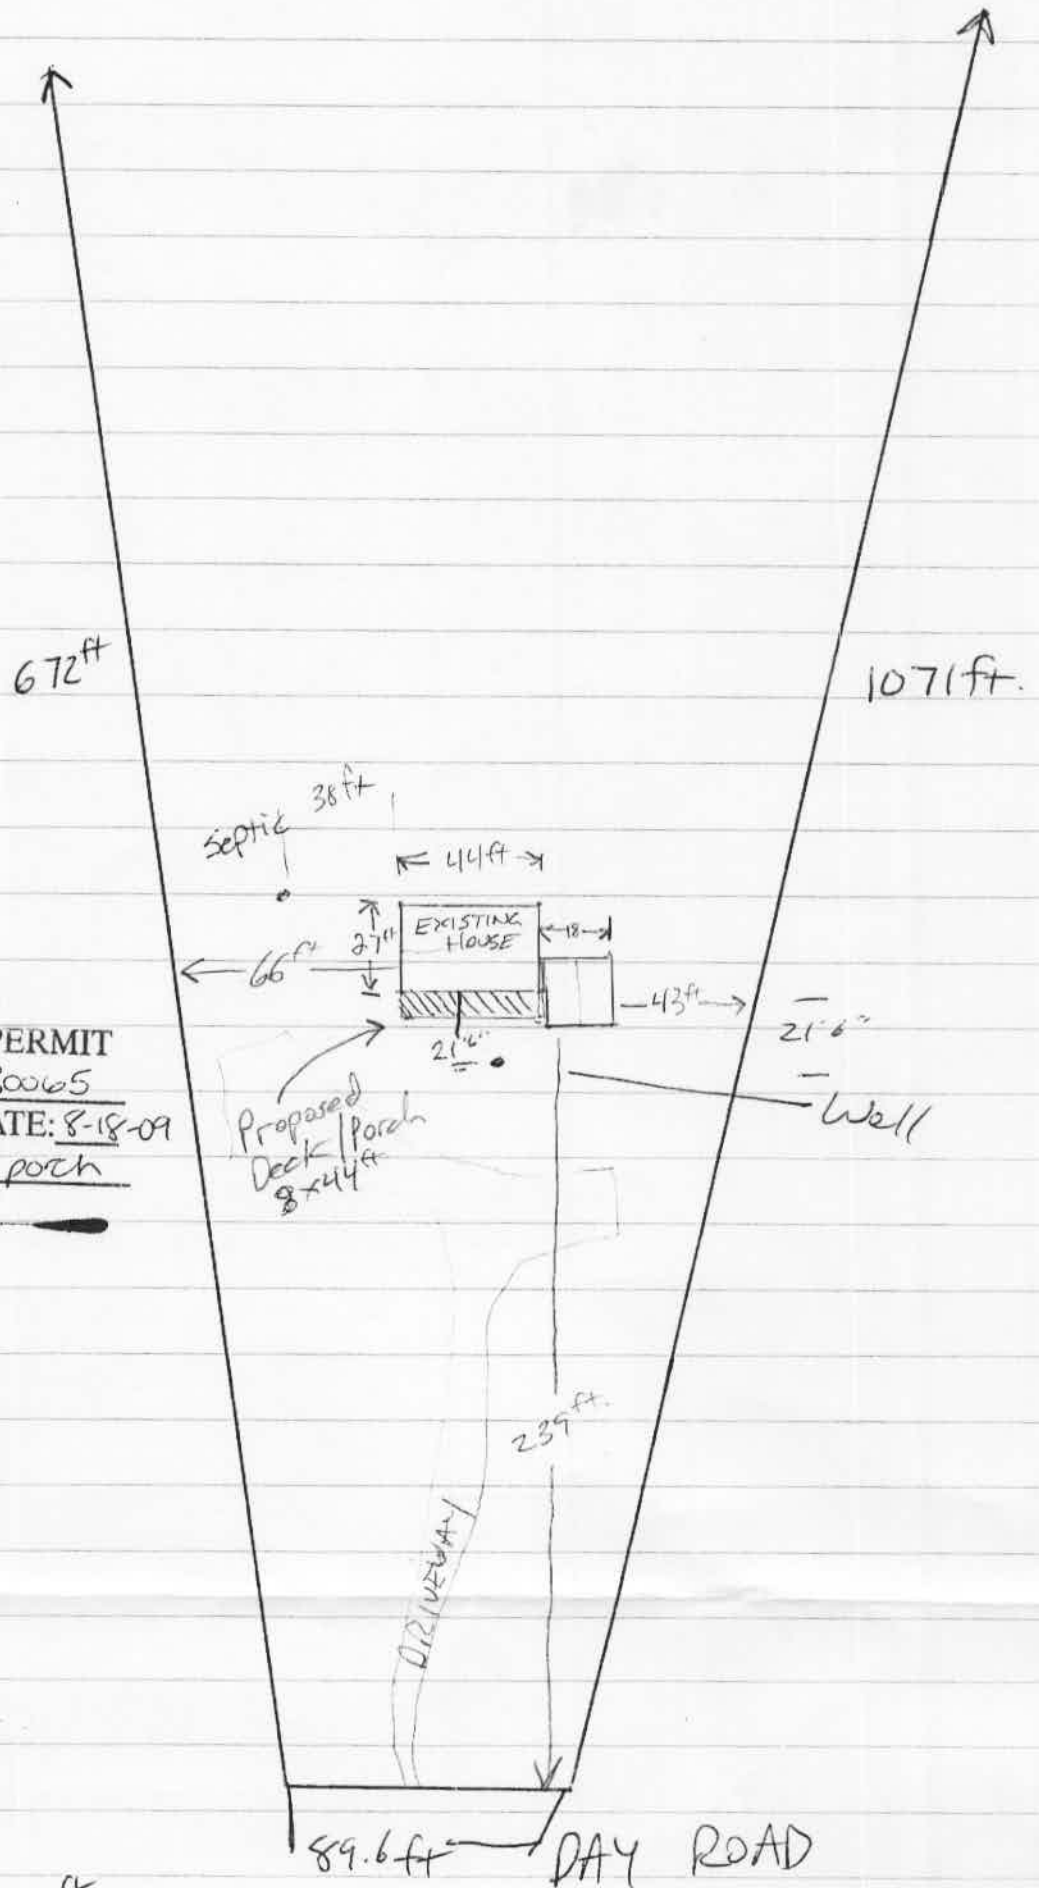 672 ft
1071 ft.
38 ft
Septic
44 ft
EXISTING
HOUSE
27 ft
18
66 ft
43 ft
21'6"
21'6"
Well
PERMIT
80065
ATE: 8-18-09
porch
Proposed
Deck / Porch
8x44 ft
239 ft.
DRIVEWAY
89.6 ft
DAY ROAD
ft